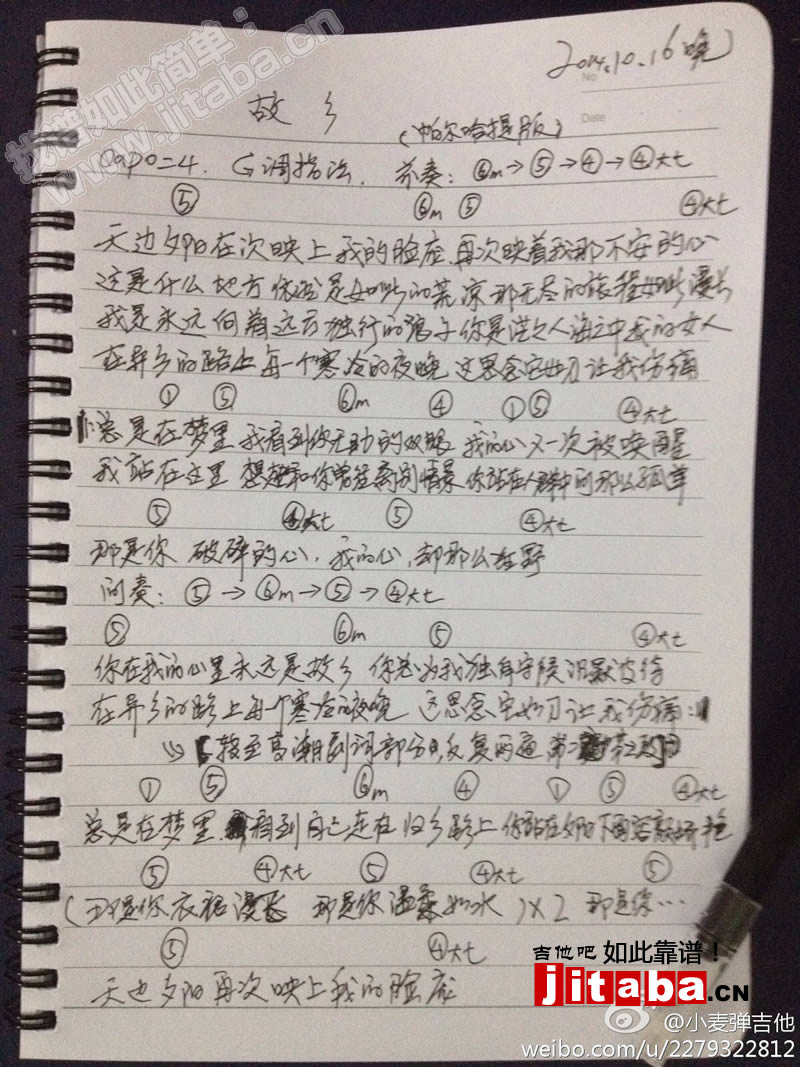 找谱如此简单：
www.jitaba.cn
2014.10.16晚
No
Date
故乡
(帕尔哈提版)
Capo=4. G调指法. 前奏: ⑥m→⑤→④→④大七
⑤ ⑥m ⑤ ④大七
天边夕阳在次映上我的脸庞 再次映着我那不安的心
这是什么地方依然是如此的荒凉 那无尽的旅程如此漫长
我是永远向着远方独行的浪子 你是茫茫人海之中我的女人
在异乡的路上每一个寒冷的夜晚 这思念它如刀让我伤痛
① ⑤ ⑥m ④ ① ⑤ ④大七
‖:总是在梦里 我看到你无助的双眼 我的心又一次被唤醒
我站在这里 想起和你曾经离别情景 你站在人群中间那么孤单
⑤ ④大七 ⑤ ④大七
那是你 破碎的心. 我的心, 却那么狂野
间奏: ⑤→⑥m→⑤→④大七
⑤ ⑥m ⑤ ④大七
你在我的心里永远是故乡 你总为我独自守候沉默等待
在异乡的路上每一个寒冷的夜晚 这思念它如刀让我伤痛:‖
转至高潮 词部分 反复两遍
① ⑤ ⑥m ④ ① ⑤ ④大七
总是在梦里 看到自己走在归乡路上 你站在夕阳下面容颜娇艳
⑤ ④大七 ⑤ ④大七 ⑤
(那是你衣裙漫飞 那是你温柔如水)×2 那是你…
⑤ ④大七
天边夕阳再次映上我的脸庞
吉他吧 如此靠谱！
jitaba.CN
@小麦弹吉他
weibo.com/u/2279322812